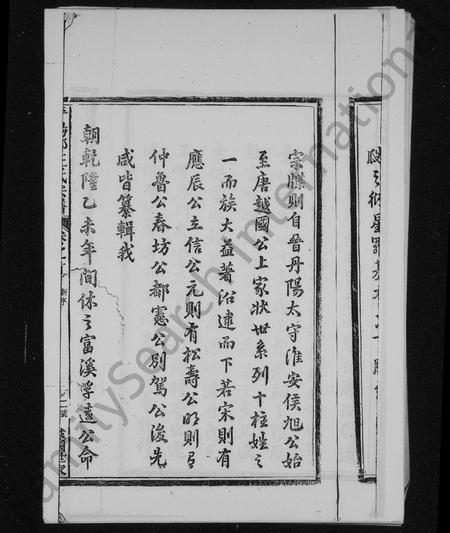 宗牒則自晉丹陽太守淮安侯旭公始
至唐越國公上家狀世系列十柱姓之
一而族大益著沿逮而下若宋則有
應辰公立信公元則有松壽公明則有
仲魯公春坊公都憲公別駕公浚先
咸皆纂輯我
朝乾隆乙未年間休之富溪學遠公命
FamilySearch International